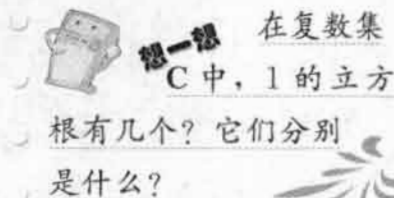 想一想 在复数集
C 中，1 的立方
根有几个？它们分别
是什么？